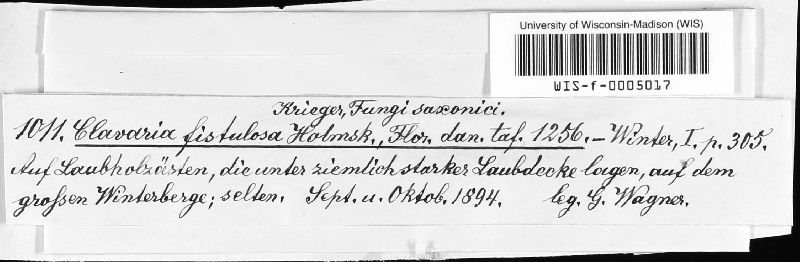 University of Wisconsin-Madison (WIS)
WIS-f-0005017
Krieger, Fungi saxonici.
1011. Clavaria fistulosa Holmsk., Flor. dan. taf. 1256. – Winter, I. p. 305.
Auf Laubholzästen, die unter ziemlich starker Laubdecke lagen, auf dem
großen Winterberge; selten. Sept. u. Oktob. 1894. leg. G. Wagner.